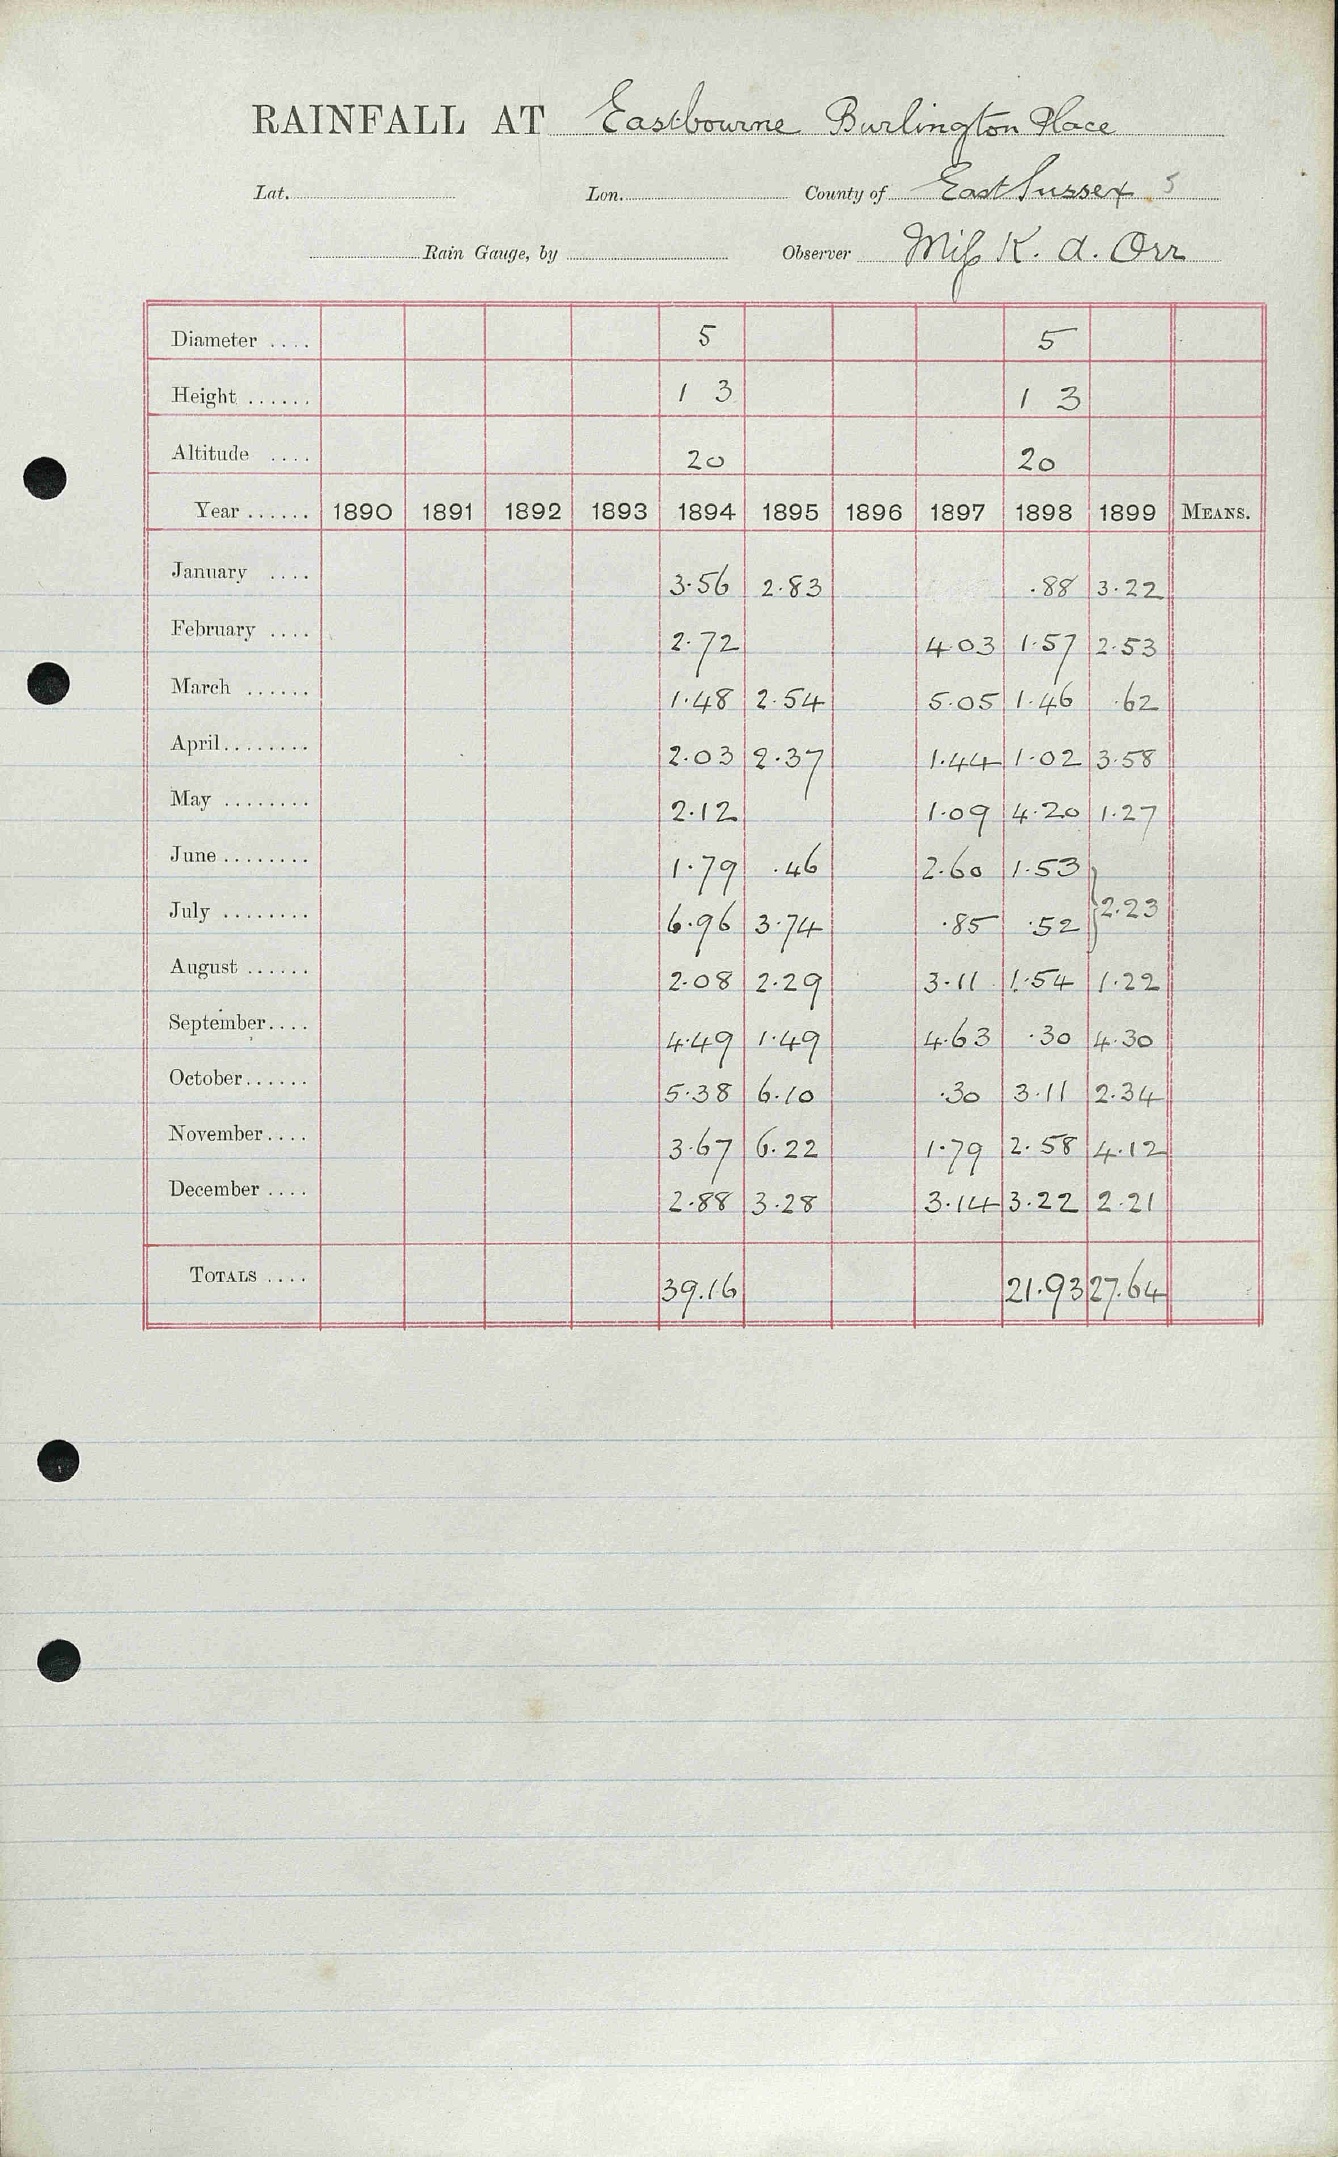 RAINFALL AT Eastbourne Burlington Place
Lat. Lon. County of East Sussex 5
Rain Gauge, by Observer Miss K. A. Orr
Diameter .... 5 5
Height ...... 1 3 1 3
Altitude .... 20 20
Year ...... 1890 1891 1892 1893 1894 1895 1896 1897 1898 1899 MEANS.
January .... 3.56 2.83 .88 3.22
February .... 2.72 4.03 1.57 2.53
March ...... 1.48 2.54 5.05 1.46 .62
April........ 2.03 2.37 1.44 1.02 3.58
May ........ 2.12 1.09 4.20 1.27
June ........ 1.79 .46 2.60 1.53
July ........ 6.96 3.74 .85 .52 } 2.23
August ...... 2.08 2.29 3.11 1.54 1.22
September.... 4.49 1.49 4.63 .30 4.30
October...... 5.38 6.10 .30 3.11 2.34
November.... 3.67 6.22 1.79 2.58 4.12
December .... 2.88 3.28 3.14 3.22 2.21
TOTALS .... 39.16 21.93 27.64